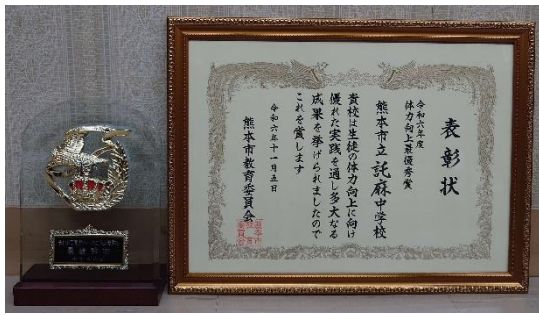 表彰状
令和六年度
体力向上最優秀賞
熊本市立 託麻中学校
貴校は生徒の体力向上に向け
優れた実践を通し多大なる
成果を挙げられましたので
これを賞します
令和六年十一月五日
熊本市教育委員会